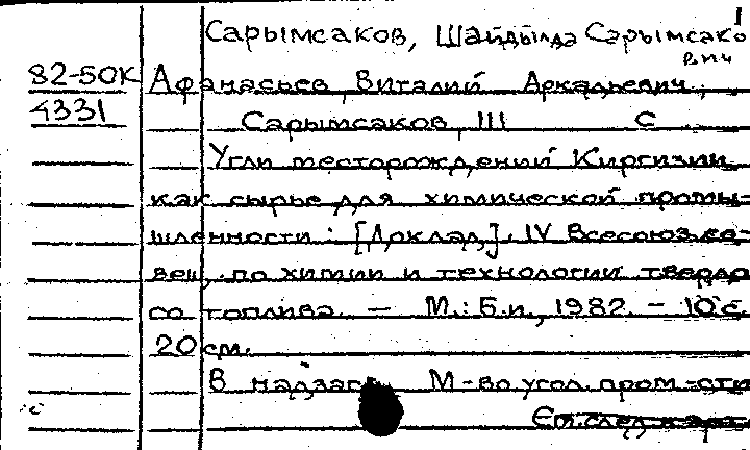 Сарымсаков, Шайдылда Сарымсако
вич
82-50К Афанасьев, Виталий Аркадьевич,
4331 Сарымсаков, Ш С
Угли месторождений Киргизии
как сырье для химической промы-
шленности: [Доклад], IV Всесоюз. со-
вещ. по химии и технологии твердо
го топлива. — М.: Б.и., 1982. - 10 с.
20 см.
В надзаг. М-во угол. пром-сти
См. след